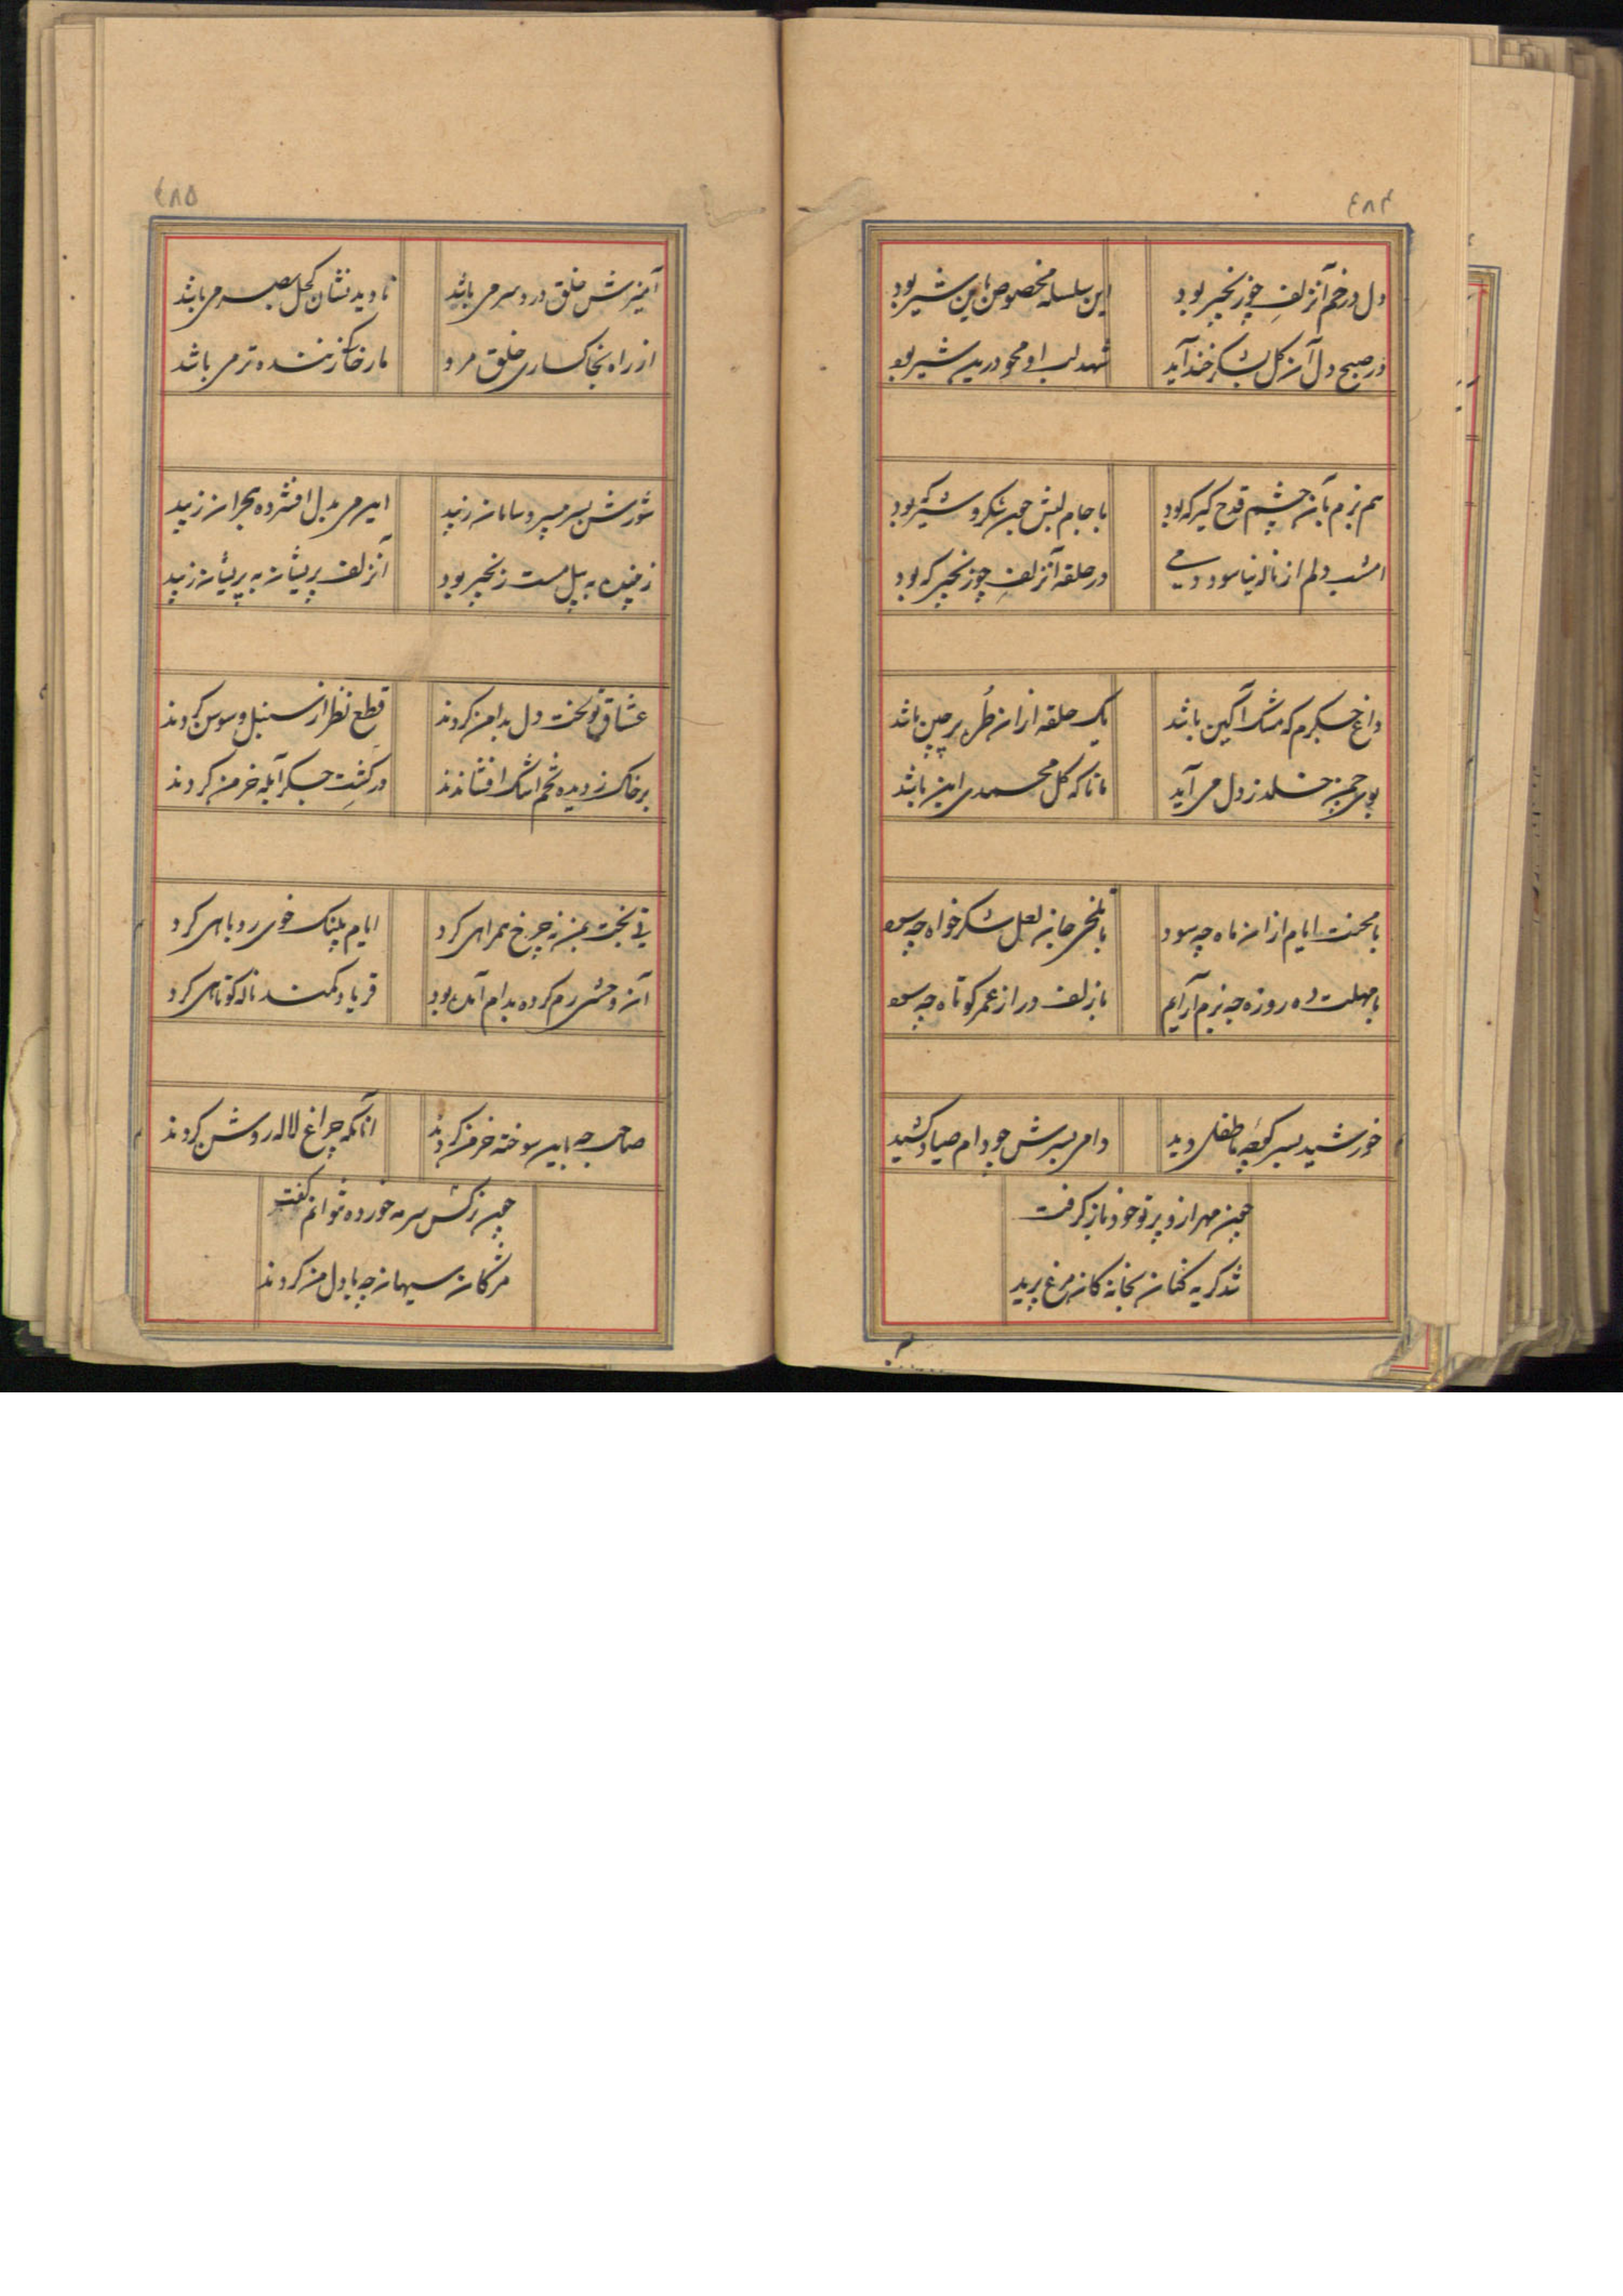 ۴۸۴
دل در خم آن زلف چو زنجیر بود
این سلسله مخصوص باین شیر بود
در صبح دل آن گل بشکر خند آید
شهد لب او محو درین شیر بود
هم بزم بآن چشم قدح گیر که بود
با جام لبش چون شکر و شیر که بود
امشب دلم از ناله نیاسود دمی
در حلقه آن زلف چو زنجیر که بود
داغ جگرم که مشک آگین باشد
یک حلقه ازان طره پرچین باشد
بوی چمن خلد ز دل می آید
مانا که گل محمدی این باشد
با محنت ایام ازان ماه چه سود
با تلخی جان لعل شکر خواه چه سود
با مهلت ده روزه چه بزم آرایم
با زلف دراز عمر کوتاه چه سود
خورشید بسر کوچه ما طفلی دید
دامی بسرش چو دام صیاد کشید
چون مهر ازو پرتو خود باز گرفت
شد گریه کنان بخانه کان مرغ پرید
۴۸۵
آمیزش خلق درد سر می باشد
نادیدنشان کحل بصر می باشد
از راه بخاکساری خلق مرو
مار خاکی گزنده تر می باشد
شورش بسر میر و سامان زیبد
ابر مژه بدل افشرده بحران زیبد
زیبنده به پیل مست زنجیر بود
آن زلف پریشان به پریشان زیبد
عشاق تو لخت دل بدامن کردند
قطع نظر از سنبل و سوسن کردند
بر خاک ز دیده تخم اشک افشاندند
در کشت جگر آبله خرمن کردند
نی بخت بمن نه چرخ همراهی کرد
ایام پلنگ خوی روباهی کرد
آن وحشی رم کرده بدام آمده بود
فریاد کمند ناله کوتاهی کرد
صاحب چه باین سوخته خرمن کردند
آنانکه چراغ لاله روشن کردند
چون نرگس سرمه خورده نتوانم گفت
مژگان سیهان چه با دل من کردند